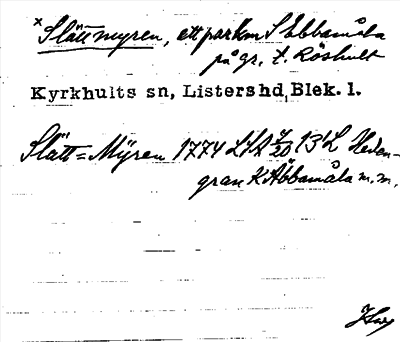 × Slättmyren, ett par km S Ebbamåla
på gr. t. Röshult
Kyrkhults sn, Listershd, Blek. l.
Slätt=Mÿren 1774 LSA 7/20 13¹ L Heden-
gran K Äbbamåla m.m.